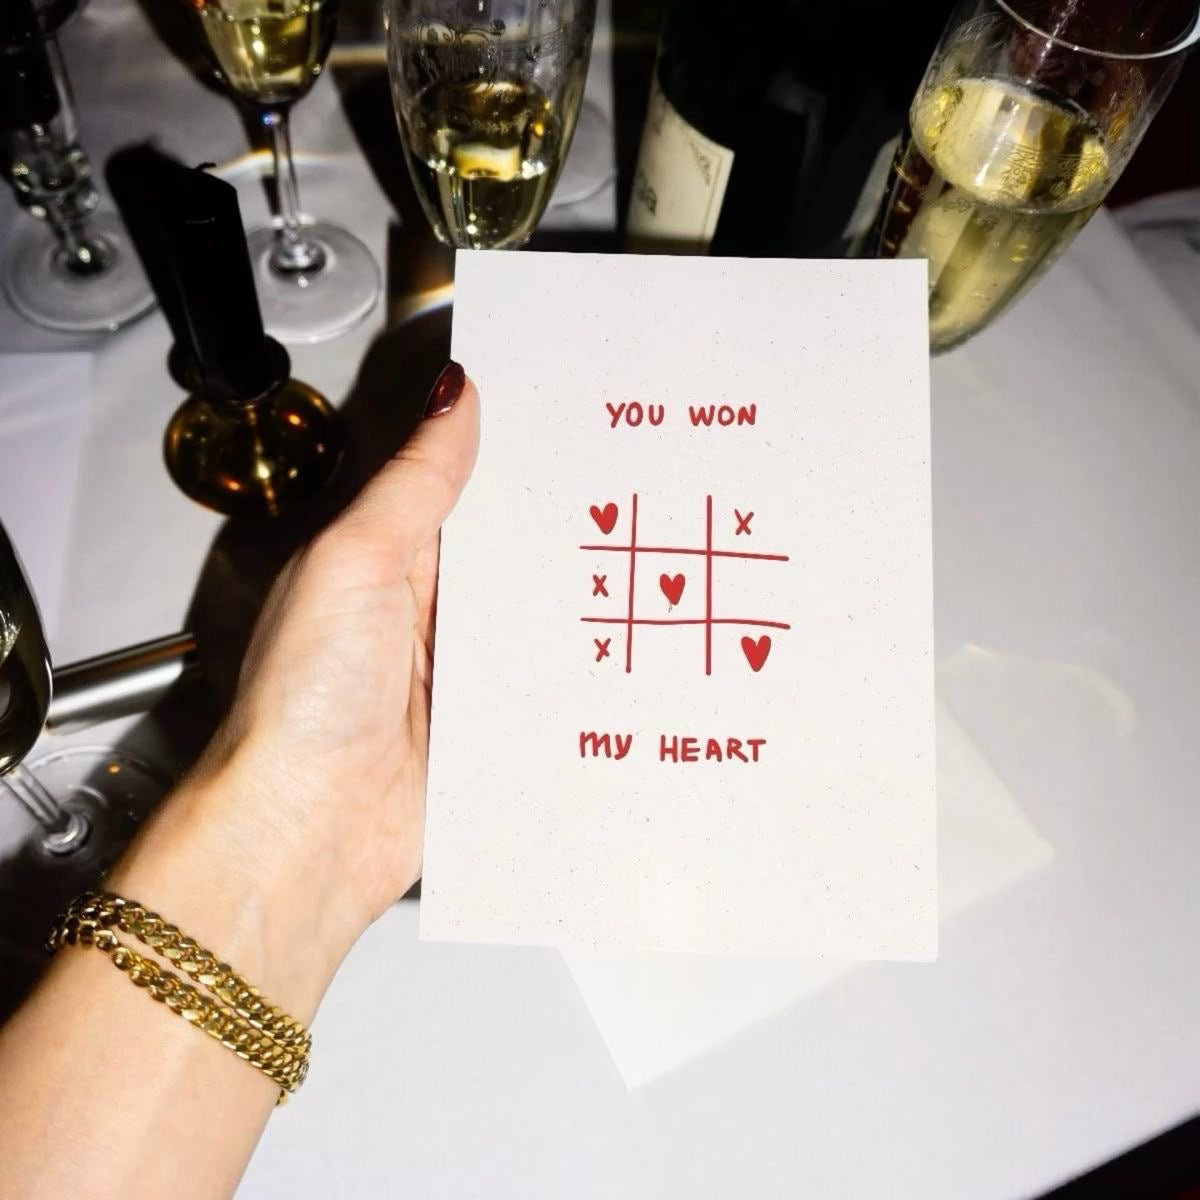 YOU WON
X
X
X
MY HEART